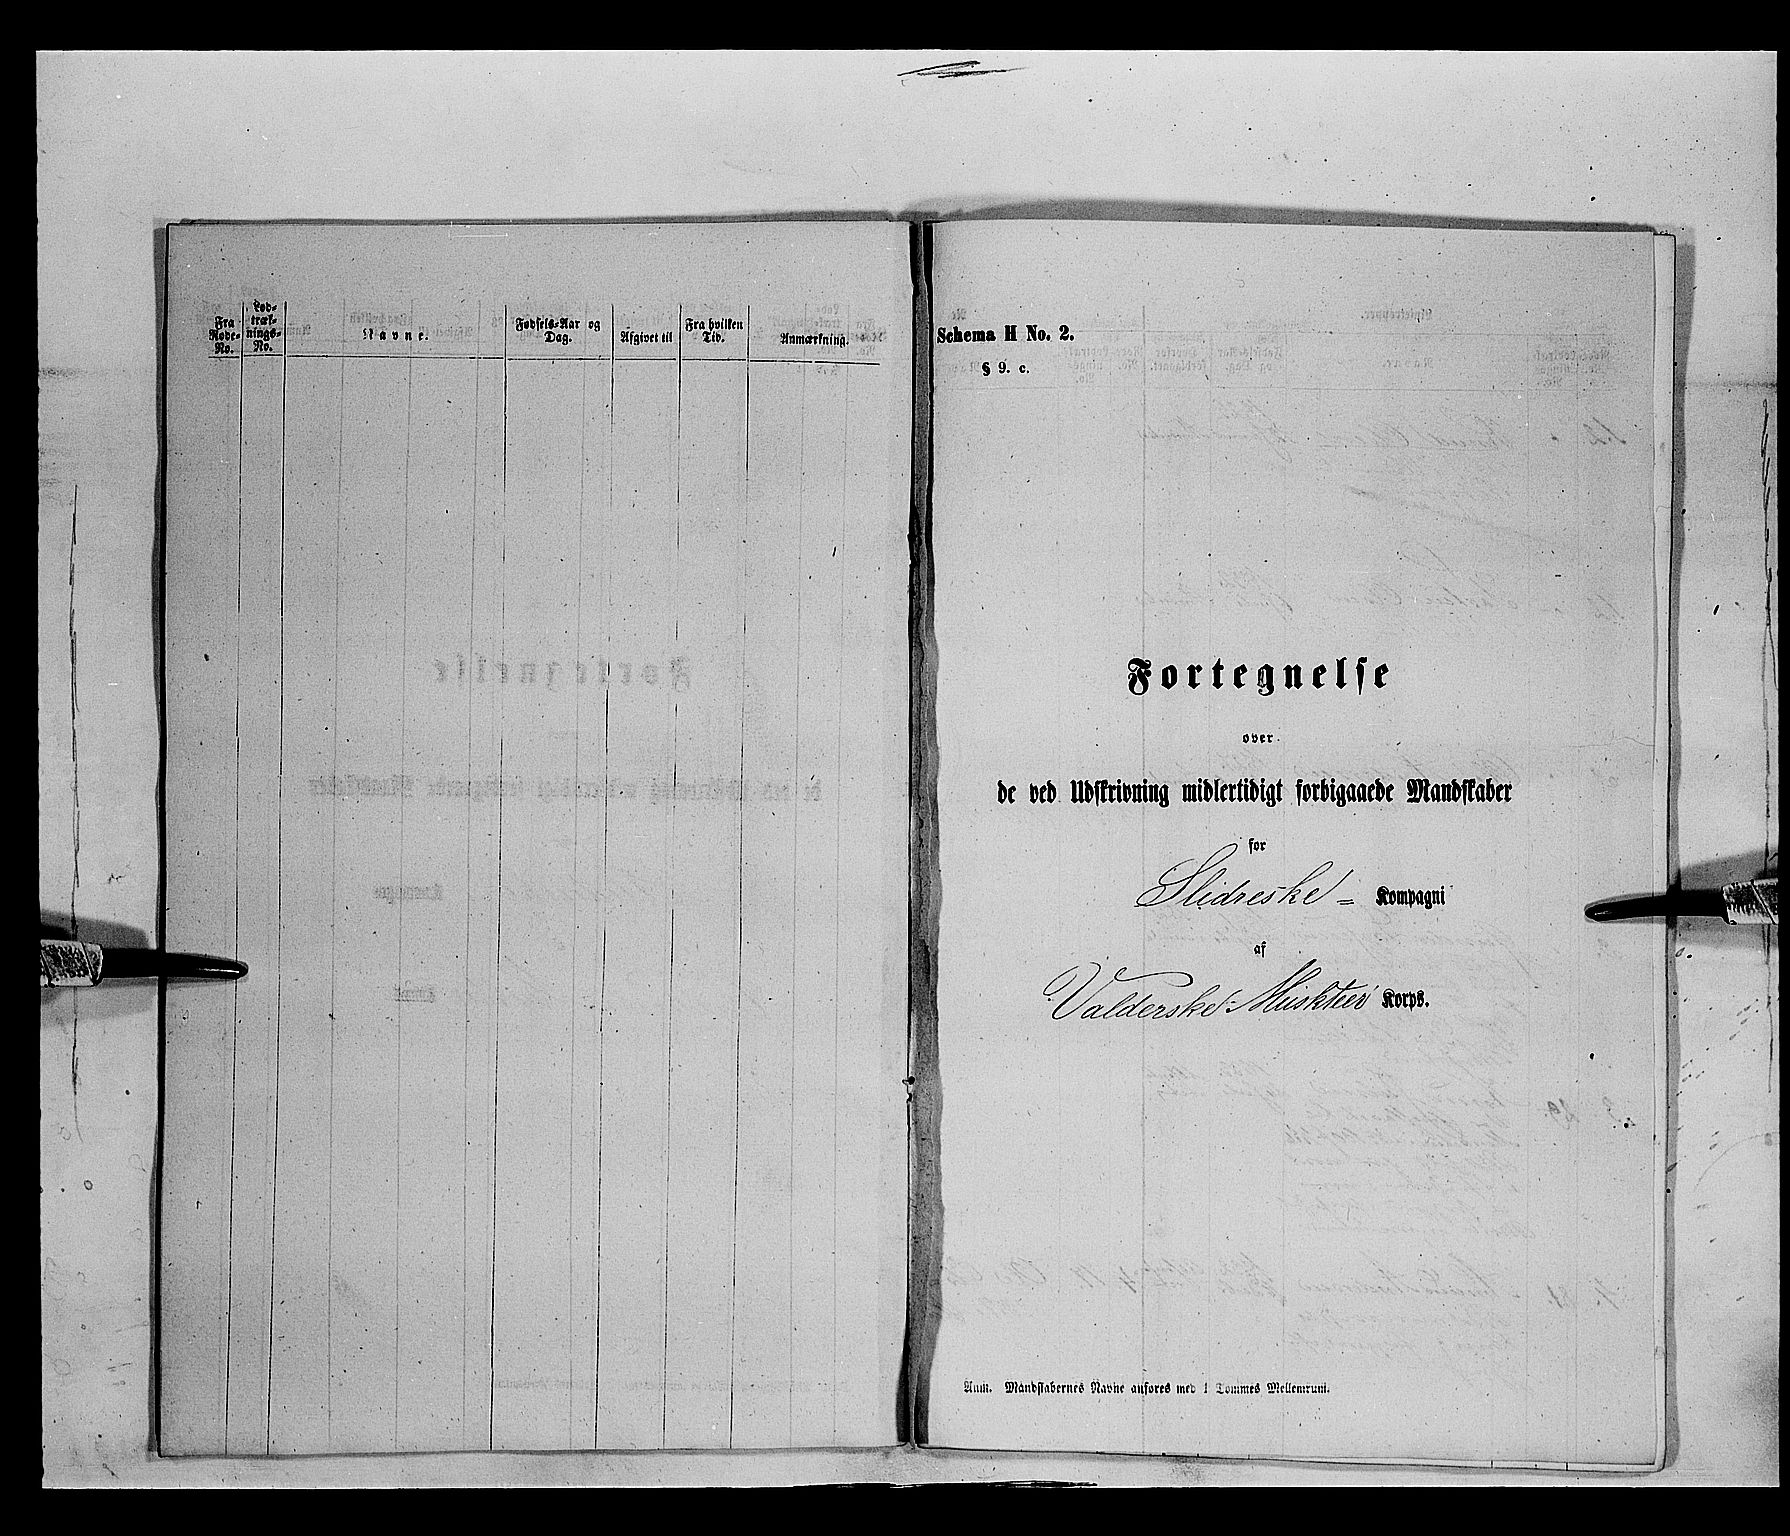 Fra
Rode-
No.
Lod-
træk-
nings-
No.
Navne.
Fødsels-Aar og
Dag.
Afgivet til
Fra hvilken
Tid.
Anmærkning.
Schema H No. 2.
§ 9. c.
Fortegnelse
over
de ved Udskrivning midlertidigt forbigaaede Mandskaber
for
Slidreske = Kompagni
af
Valderske Musketeer Korps.
Anm. Mandskabernes Navne anføres med 1 Tommes Mellemrum.